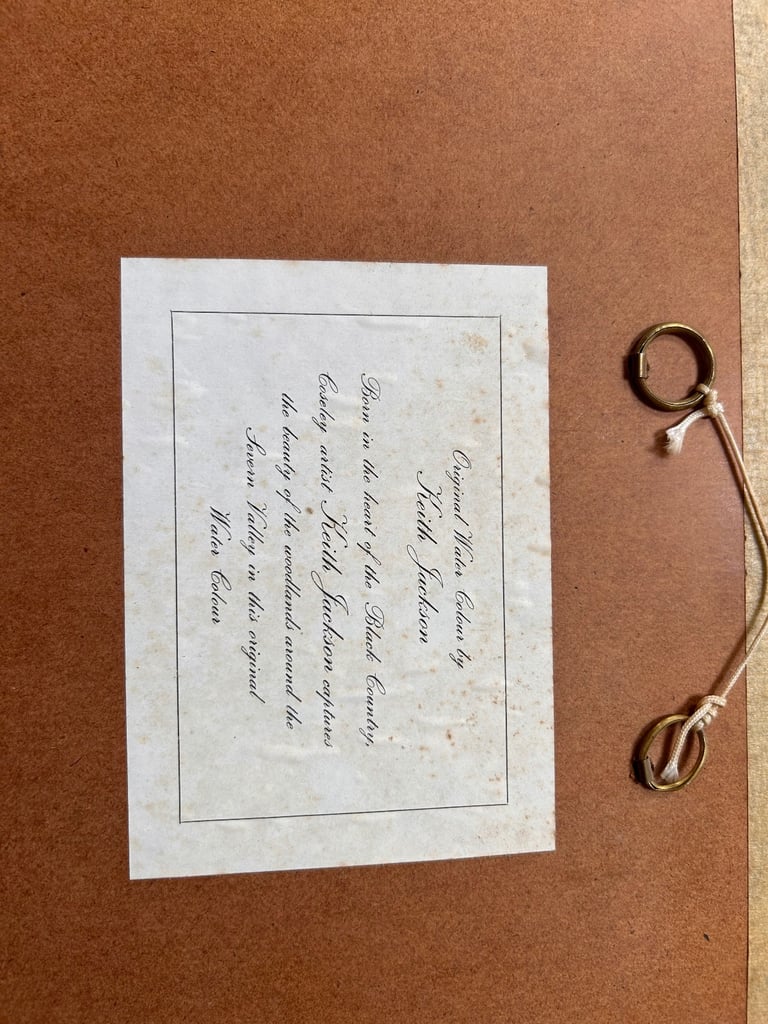 Original Water Colour by
Keith Jackson
Born in the heart of the Black Country,
Coseley artist Keith Jackson captures
the beauty of the woodlands around the
Severn Valley in this original
Water Colour